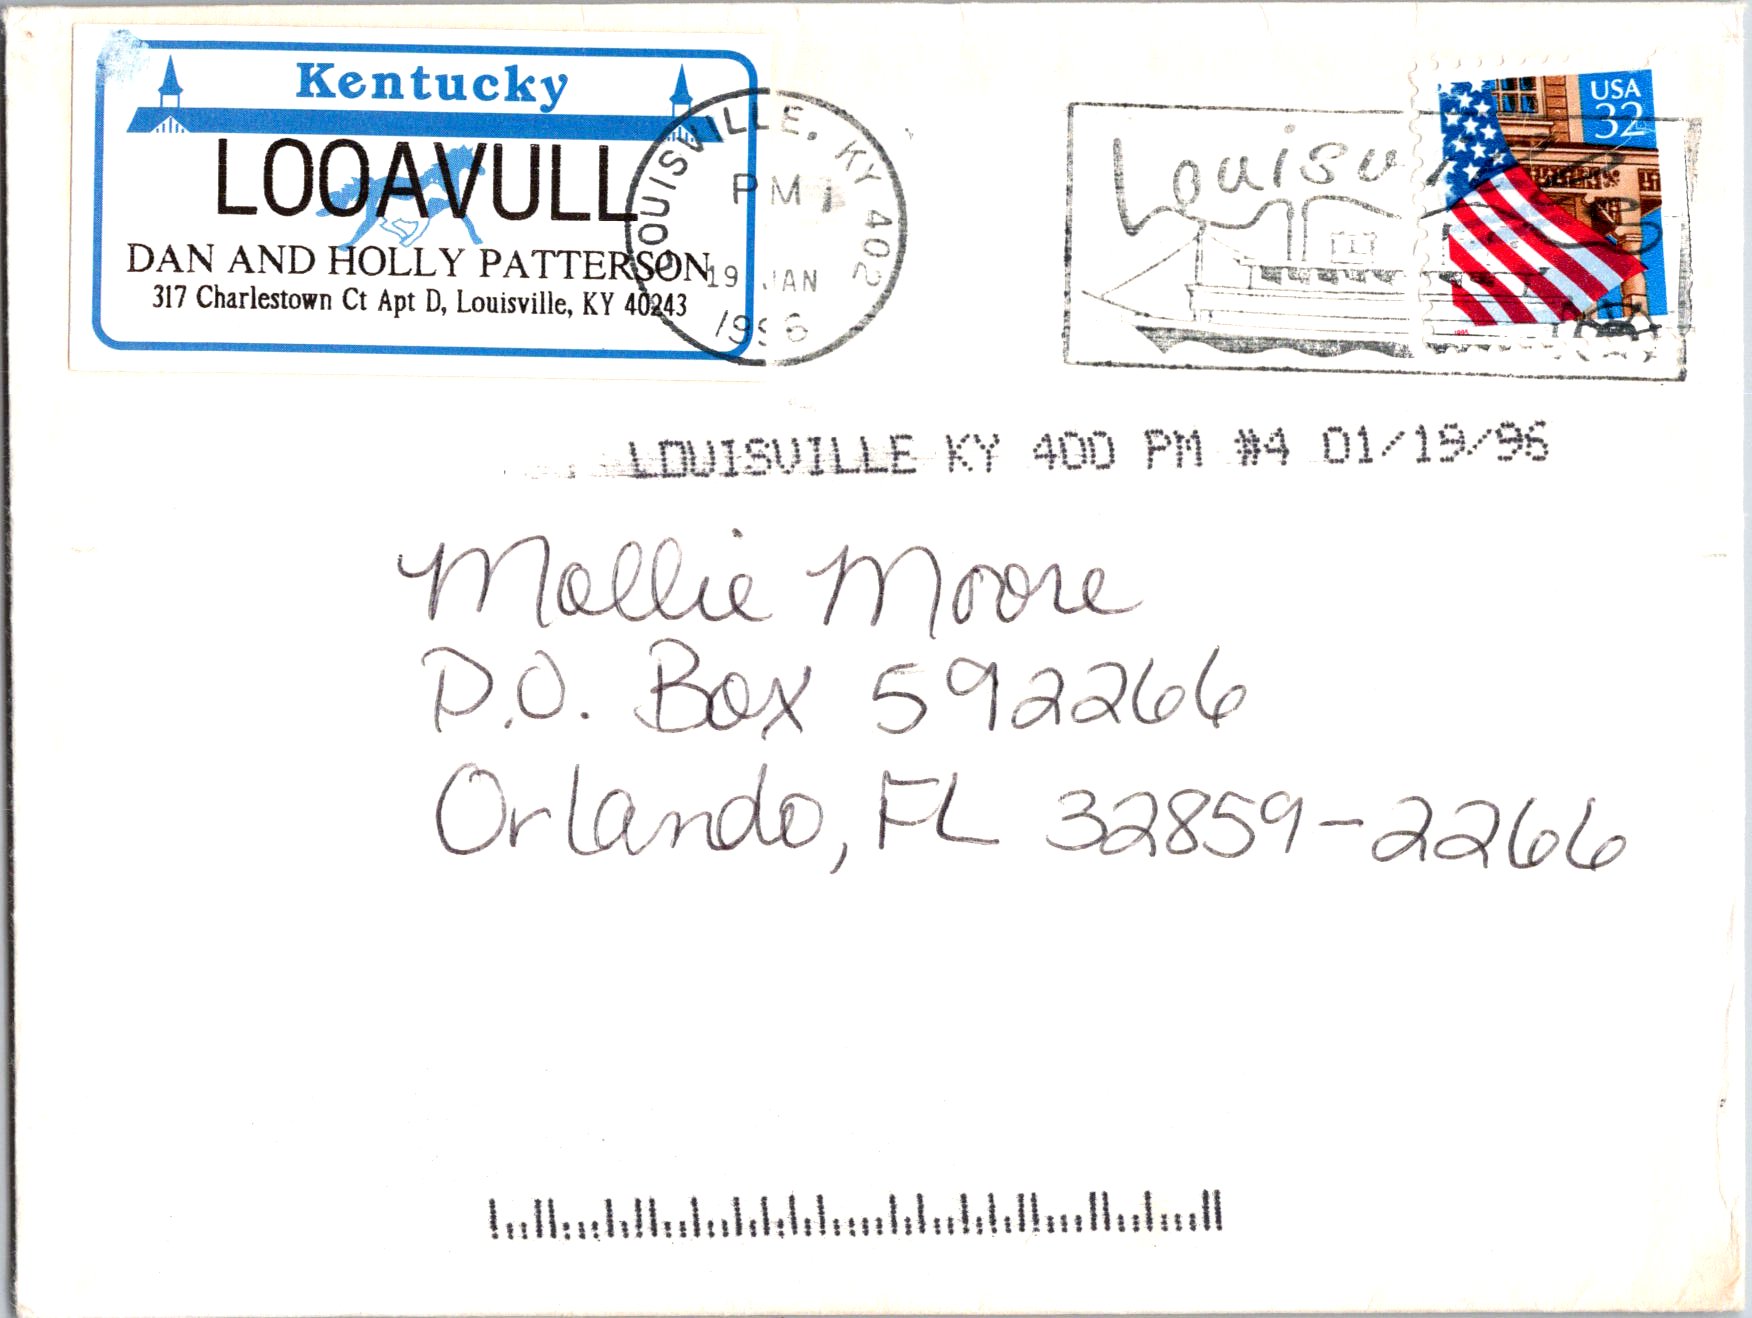 Kentucky
LOOAVULL
DAN AND HOLLY PATTERSON
317 Charlestown Ct Apt D, Louisville, KY 40243
LOUISVILLE, KY 402
PM
19 JAN
1996
Louisville
USA
32
1995
LOUISVILLE KY 400 PM #4 01/19/96
Mollie Moore
P.O. Box 592266
Orlando, FL 32859-2266